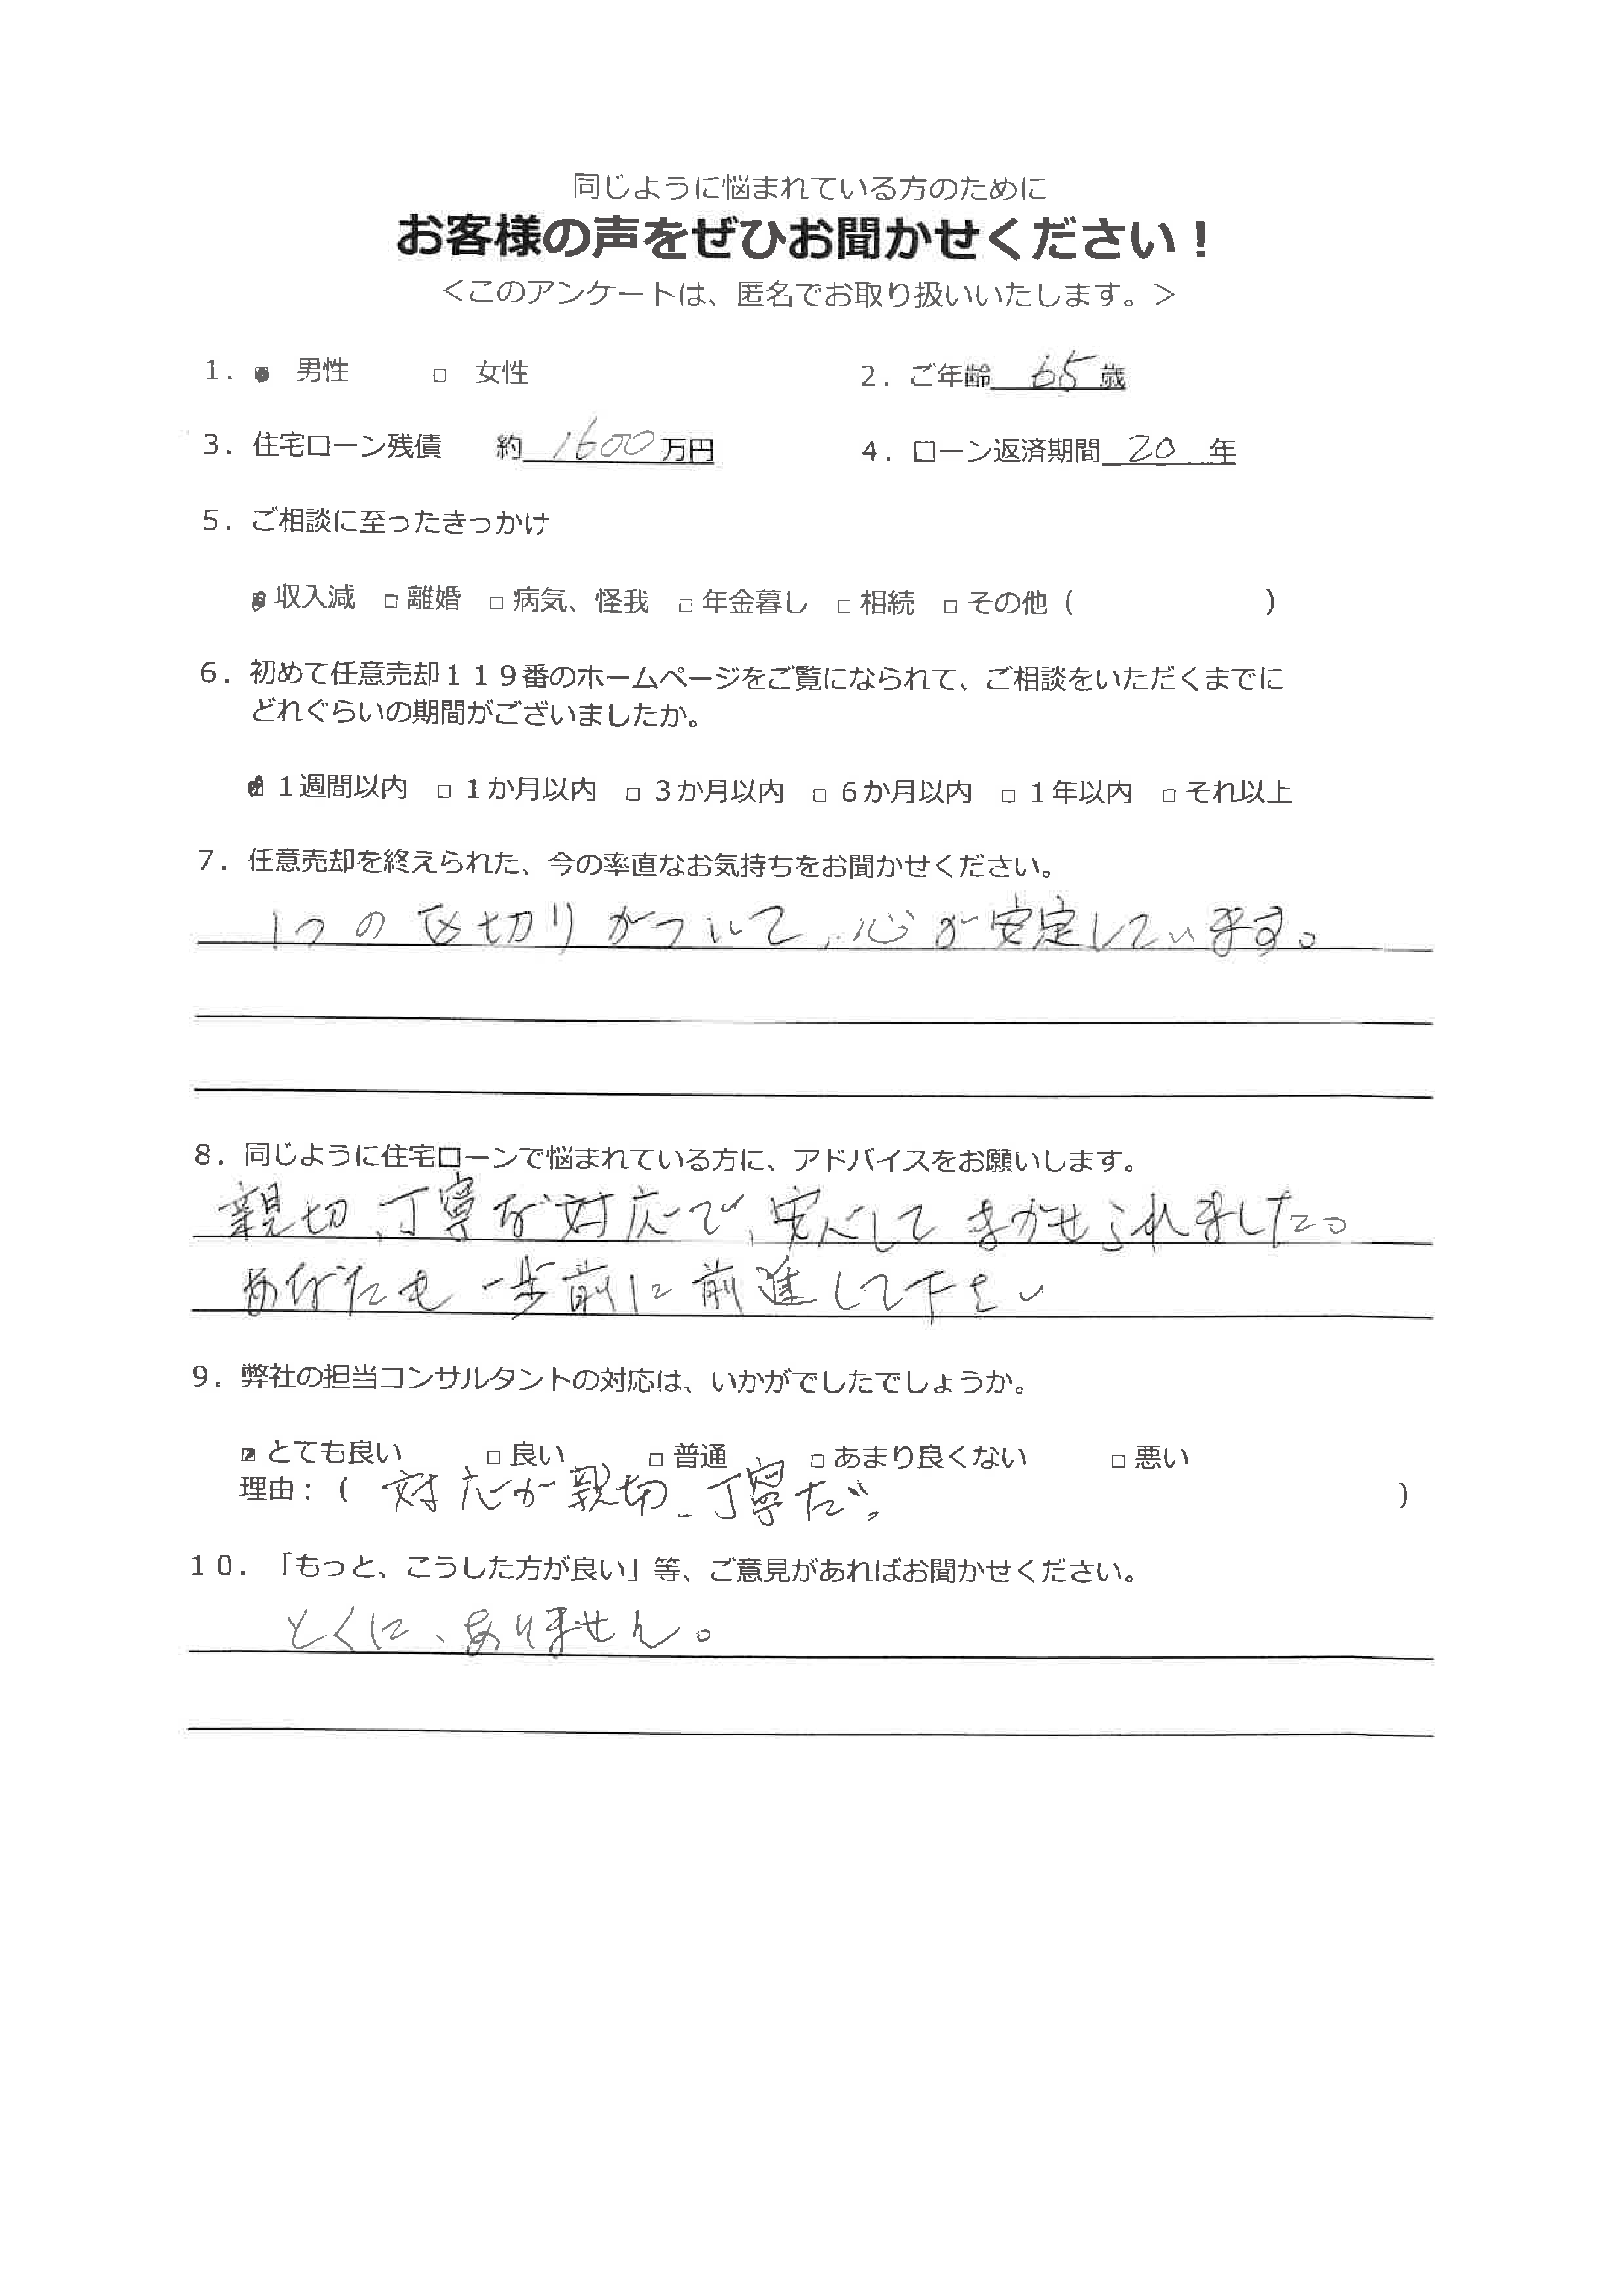 同じように悩まれている方のために
お客様の声をぜひお聞かせください！
＜このアンケートは、匿名でお取り扱いいたします。＞
1．■ 男性 □ 女性 2．ご年齢 65 歳
3．住宅ローン残債 約 1600 万円 4．ローン返済期間 20 年
5．ご相談に至ったきっかけ
■収入減 □離婚 □病気、怪我 □年金暮し □相続 □その他（ ）
6．初めて任意売却１１９番のホームページをご覧になられて、ご相談をいただくまでに
どれぐらいの期間がございましたか。
■１週間以内 □１か月以内 □３か月以内 □６か月以内 □１年以内 □それ以上
7．任意売却を終えられた、今の率直なお気持ちをお聞かせください。
1つの区切りがついて、心が安定しています。
8．同じように住宅ローンで悩まれている方に、アドバイスをお願いします。
親切、丁寧な対応で、安心してまかせられました。
あなたも一歩前に前進して下さい
9．弊社の担当コンサルタントの対応は、いかがでしたでしょうか。
■とても良い □良い □普通 □あまり良くない □悪い
理由：（ 対応が親切、丁寧だ。 ）
１０．「もっと、こうした方が良い」等、ご意見があればお聞かせください。
とくに、ありません。